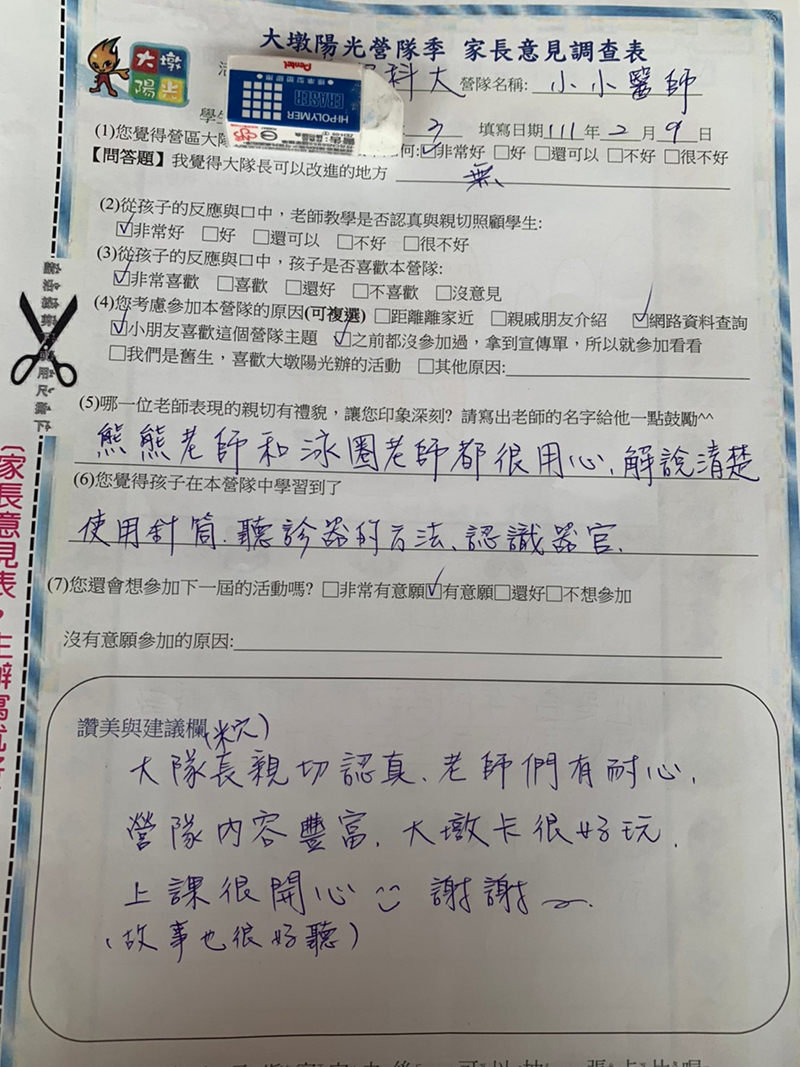 大墩陽光營隊季 家長意見調查表
大墩
陽光
科大 營隊名稱: 小小醫師
Pentel
HI-POLYMER
ERASER
填寫日期111年2月9日
(1)您覺得營區大 何:☑非常好 □好 □還可以 □不好 □很不好
【問答題】我覺得大隊長可以改進的地方 無
(2)從孩子的反應與口中，老師教學是否認真與親切照顧學生:
☑非常好 □好 □還可以 □不好 □很不好
(3)從孩子的反應與口中，孩子是否喜歡本營隊:
☑非常喜歡 □喜歡 □還好 □不喜歡 □沒意見
(4)您考慮參加本營隊的原因(可複選) □距離離家近 □親戚朋友介紹 ☑網路資料查詢
☑小朋友喜歡這個營隊主題 ☑之前都沒參加過，拿到宣傳單，所以就參加看看
□我們是舊生，喜歡大墩陽光辦的活動 □其他原因:
(5)哪一位老師表現的親切有禮貌，讓您印象深刻? 請寫出老師的名字給他一點鼓勵^^
熊熊老師和泳圈老師都很用心、解說清楚
(6)您覺得孩子在本營隊中學習到了
使用針筒、聽診器的方法、認識器官、
(7)您還會想參加下一屆的活動嗎? □非常有意願☑有意願□還好□不想參加
沒有意願參加的原因:
讚美與建議欄
(米穴)
大隊長親切認真、老師們有耐心、
營隊內容豐富、大墩卡很好玩、
上課很開心 謝謝~.
(故事也很好聽)
(家長意見表，